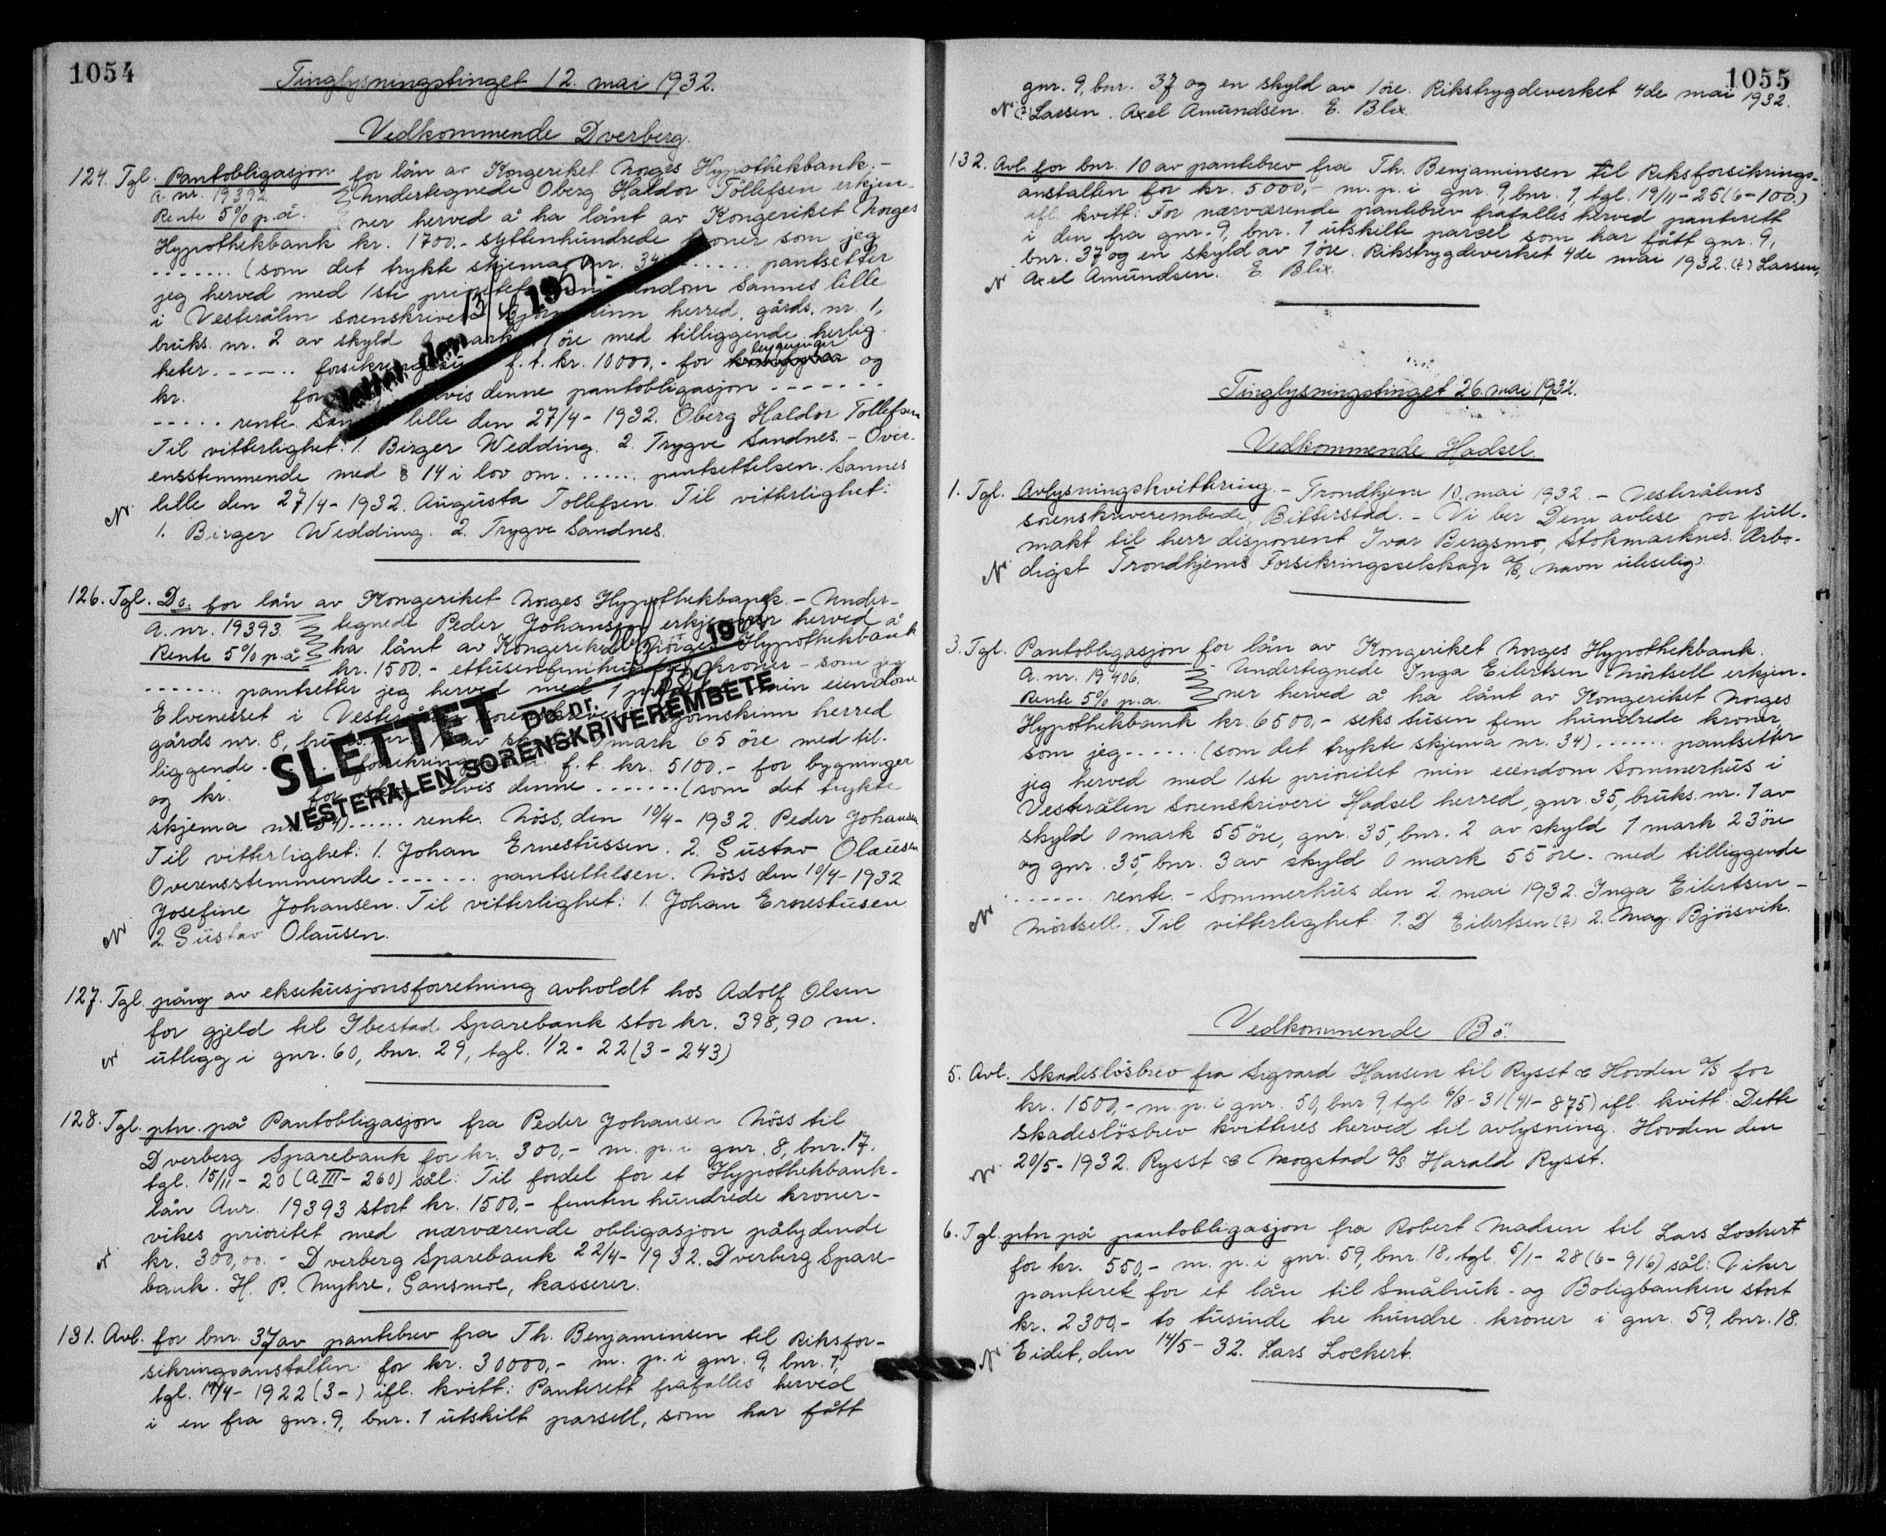 1054
Tinglysningstinget 12. mai 1932.
Vedkommende Dverberg.
124. Tgl. Pantobligasjon for lån av Kongeriket Norges Hypothekbank. -
a. nr. 19392. Undertegnede Oberg Haldor Tollefsen erkjen-
Rente 5% p.a. ner herved å ha lånt av Kongeriket Norges
Hypothekbank kr. 1700.- syttenhundrede kroner som jeg
....... (som det trykte skjema nr. 34) ...... pantsetter
jeg herved med 1ste prioritet min eiendom Sannes lille
i Vesterålen sorenskriveri herred, gårds. nr. 1,
bruks. nr. 2 av skyld mark øre med tilliggende herlig-
heter ...... f.t. kr. 10000,- for bygninger og
kr. for hvis denne pantobligasjon .......
..... rente. Sannes lille den 27/4 - 1932. Oberg Haldor Tollefsen
Til vitterlighet: 1. Birger Wedding. 2. Trygve Sandnes. - Over-
ensstemmende med § 14 i lov om ...... pantsettelsen. Sannes
lille den 27/4 - 1932. Augusta Tollefsen. Til vitterlighet:
1. Birger Wedding. 2. Trygve Sandnes.
126. Tgl. Do. for lån av Kongeriket Norges Hypothekbank. - Under-
a. nr. 19393. tegnede Peder Johansen erkjenner herved å
Rente 5% p.a. ha lånt av Kongeriket Norges Hypothekbank
kr. 1500.- ettusenfemhundrede kroner - som jeg
...... pantsetter jeg herved med 1 min eiendom
Elvenesset i Vesterålen sorenskriveri Bjørnskinn herred
gårds nr. 8, bruks. nr. av skyld 0 mark 65 øre med til-
liggende f.t. kr. 5100.- for bygninger
og kr. for Hvis denne ....... (som det trykte
skjema nr. 34) ...... rente. Nöss, den 10/4 - 1932. Peder Johansen
Til vitterlighet: 1. Johan Ernestussen. 2. Gustav Olausen
Overensstemmende ....... pantsettelsen. Nöss den 10/4 - 1932
Josefine Johansen. Til vitterlighet: 1. Johan Ernestusen
2. Gustav Olausen.
SLETTET
Db. nr.
VESTERALEN SORENSKRIVEREMBETE
127. Tgl. påny av eksekusjonsforretning avholdt hos Adolf Olsen
for gjeld til Ibestad Sparebank stor kr. 398,90 m.
utlegg i gnr. 60, bnr. 29, tgl. 1/2 - 22 (3 - 243)
128. Tgl. ptn. på Pantobligasjon fra Peder Johansen Nöss til
Dverberg Sparebank for kr. 300,- m. p. i gnr. 8, bnr. 17.
tgl. 15/11 - 20 (A III - 260) sål: Til fordel for et Hypothekbank-
lån Anr. 19393 stort kr. 1500,- femten hundrede kroner -
vikes prioritet med nærværende obligasjon pålydende
kr. 300,00. - Dverberg Sparebank 22/4 - 1932. Dverberg Spare-
bank. H. P. Myhre. Gansmoe, kasserer.
131. Avl. for bnr. 37 av pantebrev fra Th. Benjaminsen til Riksfor-
sikringsanstalten for kr. 30000,- m. p. i gnr. 9, bnr. 1,
tgl. 19/4 - 1922 (3 - ) ifl. kvitt: Panterett frafalles herved
i en fra gnr. 9, bnr. 1 utskilt parsell, som har fått
1055
gnr. 9, bnr. 37 og en skyld av 1 øre. Rikstrygdeverket 4de mai 1932.
(?) Larsen. Axel Amundsen. E. Blix.
132. Avl. for bnr. 10 av pantebrev fra Th. Benjaminsen til Riksforsikrings-
anstalten for kr. 5000,- m. p. i gnr. 9, bnr. 1, tgl. 19/11 - 25 (6 - 100)
ifl. kvitt: For nærværende pantebrev frafalles herved panterett
i den fra gnr. 9, bnr. 1 utskilte parcel som har fått gnr. 9,
bnr. 37 og en skyld av 1 øre. Rikstrygdeverket 4de mai 1932. (?) Larsen,
Axel Amundsen. E. Blix.
Tinglysningstinget 26. mai 1932.
Vedkommende Hadsel.
1. Tgl. Avlysningskvittering. - Trondhjem 10. mai 1932. - Vesterålens
sorenskriverembede, Bitterstad. - Vi ber Dem avlese vor full-
makt til herr disponent Ivar Bergsmo, Stokmarknes. Ærbø-
digst Trondhjems Forsikringsselskap A/S, (navn uleselig)
3. Tgl. Pantobligasjon for lån av Kongeriket Norges Hypothekbank.
a. nr. 19406. - Undertegnede Inga Eilertsen Mörtsell erkjen-
Rente 5% p.a. ner herved å ha lånt av Kongeriket Norges
Hypothekbank kr. 6500,- seks tusen fem hundrede kroner
som jeg ...... (som det trykte skjema nr. 34) ....... pantsetter
jeg herved med 1ste prioritet min eiendom Sommerhus i
Vesterålen Sorenskriveri Hadsel herred, gnr. 35, bruks. nr. 1 av
skyld 0 mark 55 öre, gnr. 35, bnr. 2 av skyld 1 mark 23 öre
og gnr. 35, bnr. 3 av skyld 0 mark 55 öre. med tilliggende
...... rente. - Sommerhus den 2. mai 1932. Inga Eilertsen -
Mörtsell. Til vitterlighet: 1. D Eilertsen (?) 2. Mag. Bjørsvik.
Vedkommende Bö.
5. Avl. Skadeslösbrev fra Sigvard Hansen til Rysst & Hovden A/S for
kr. 1500,- m. p. i gnr. 50, bnr 9, tgl 6/8 - 31 (41 - 875) ifl. kvitt: Dette
skadeslösbrev kvitteres herved til avlysning. Hovden den
20/5 - 1932. Rysst & Mogstad A/S Harald Rysst.
6. Tgl. ptn på pantobligasjon fra Robert Madsen til Lars Lockert
for kr. 550,- m. p. i gnr. 59, bnr. 18, tgl. 5/1 - 28 (6 - 916) sål: Viker
panteret for et lån til Småbruk- og Boligbanken stort
kr. 2300,- to tusinde tre hundre kroner i gnr. 59, bnr. 18.
Eidet, den 14/5 - 32. Lars Lockert.